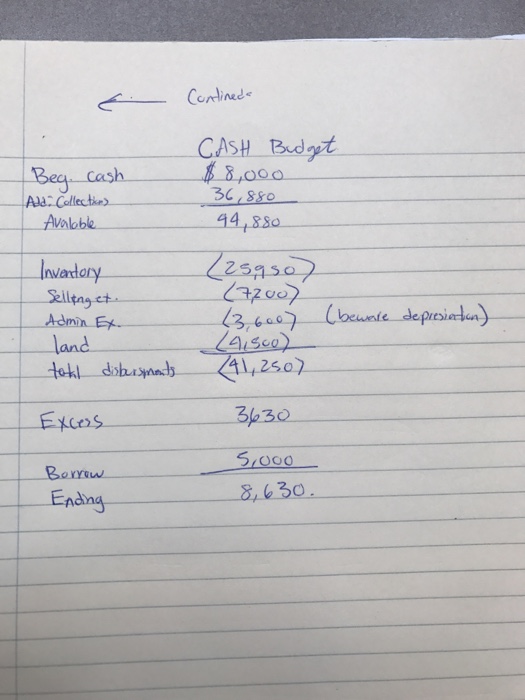 ← Contined
CASH Budget
Beg. cash $ 8,000
Add: Collections 36,880
Avalable 44,880
Inventory (25,950)
Selling et. (7200)
Admin Ex. (3,600) (beware depresiation)
land (4,500)
total disbursments (41,250)
Excess 3630
Borrow 5,000
Ending 8,630.